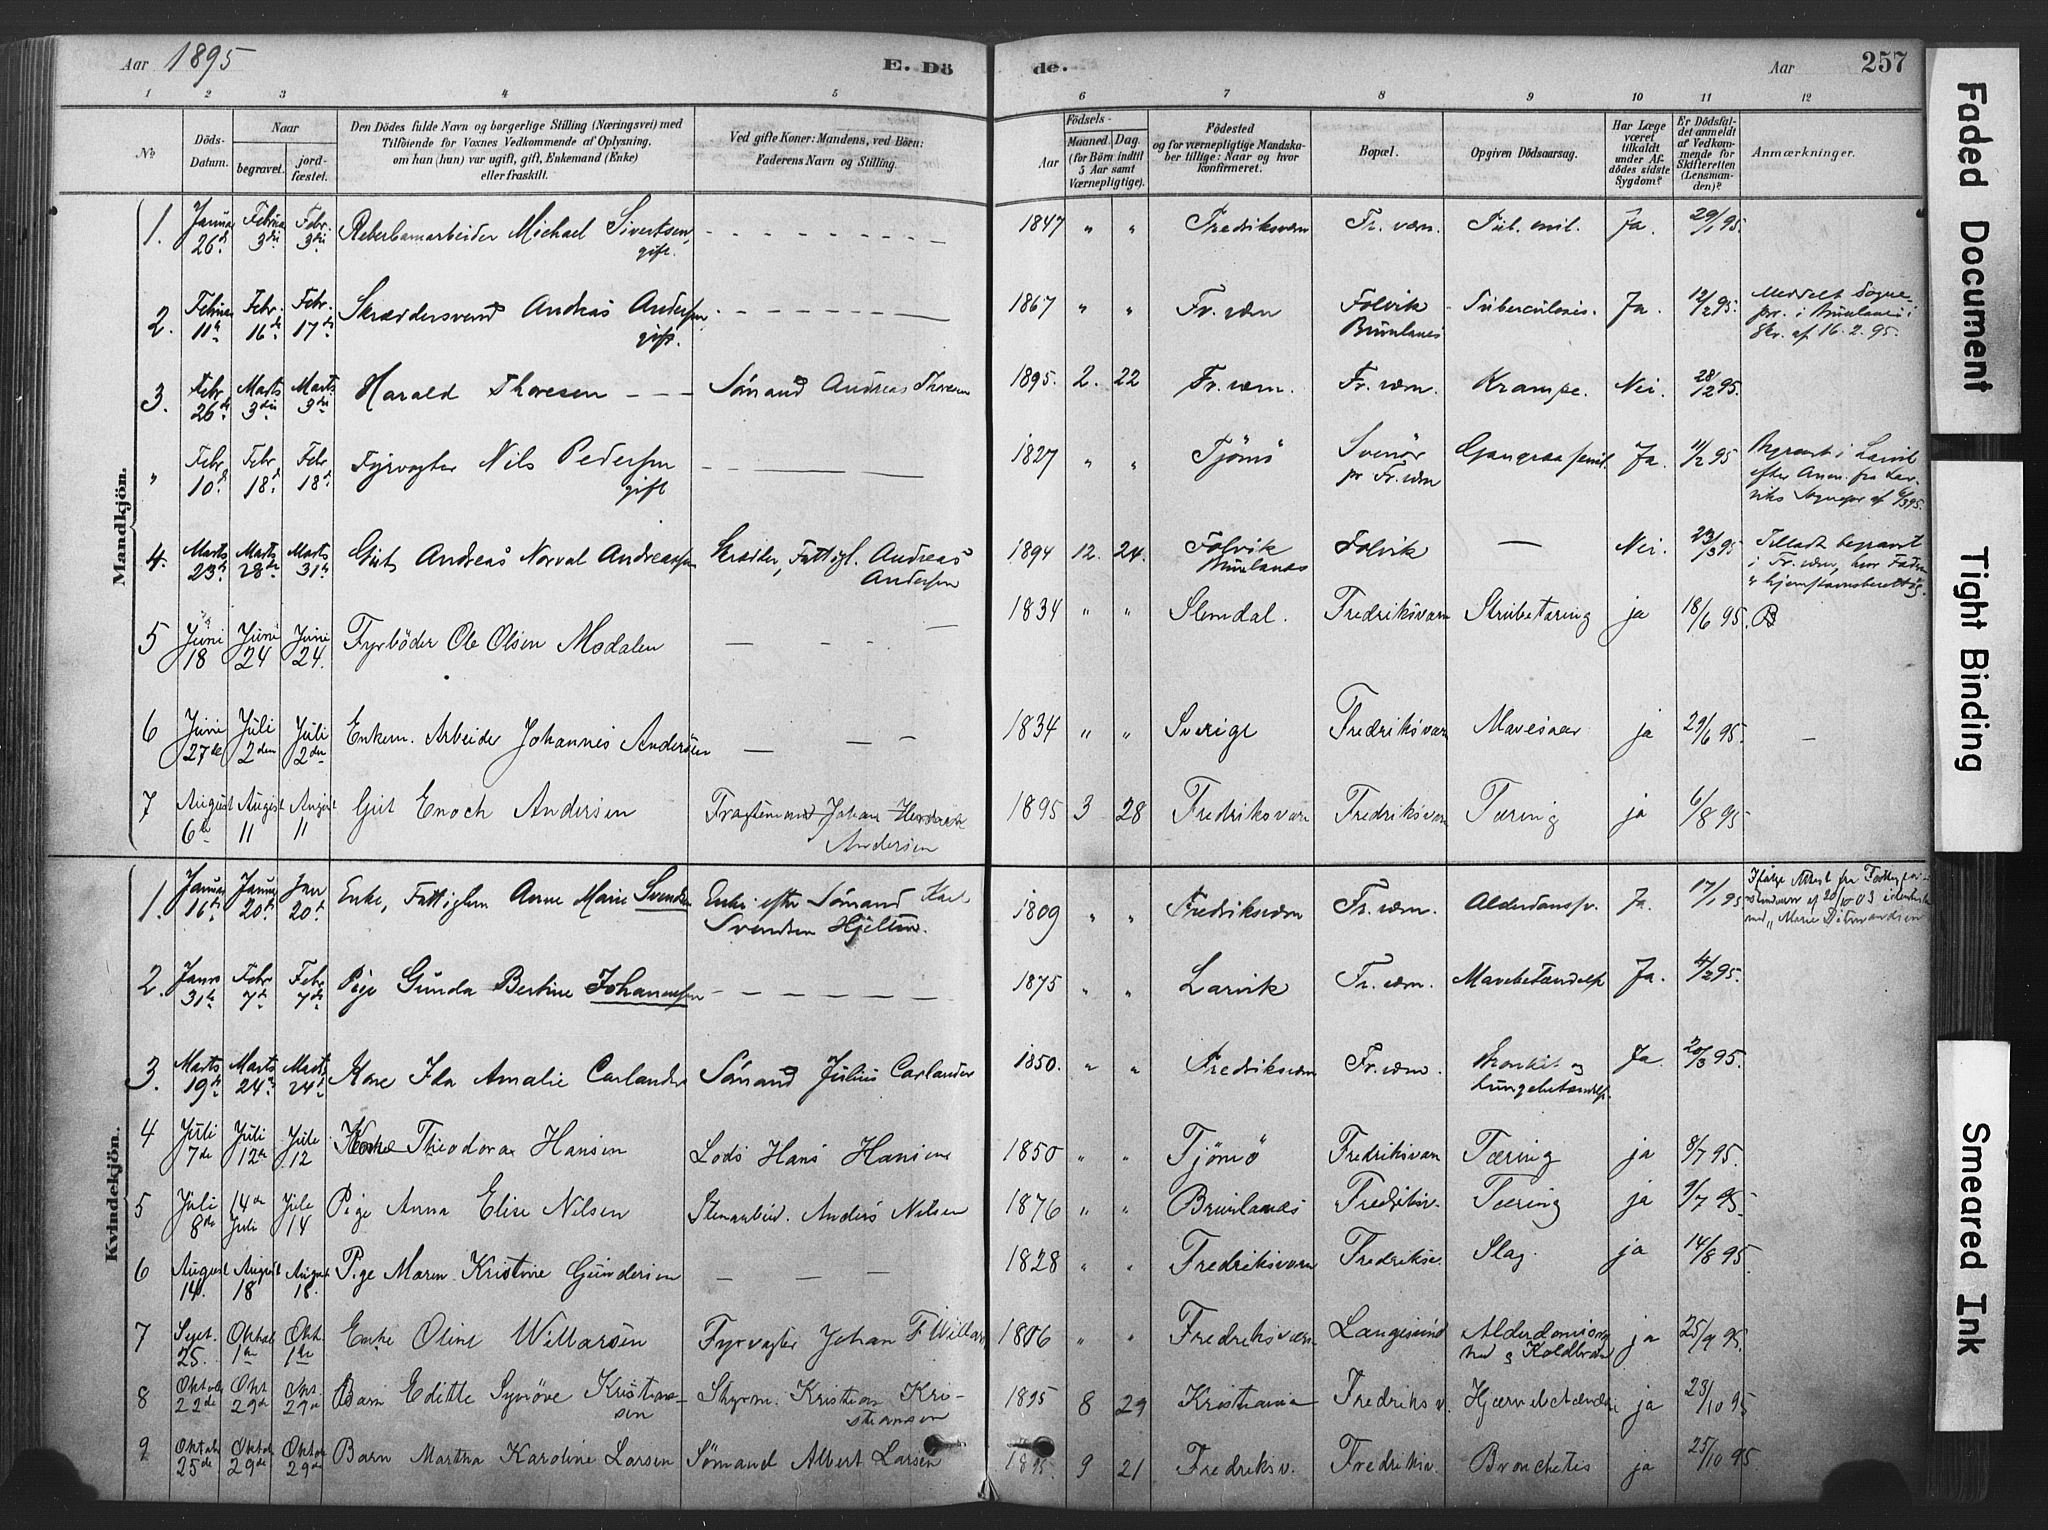 Aar 1895
E. Dö
de.
Aar
257
1 2 3 4 5 6 7 8 9 10 11 12
No
Döds-Datum.
Naar
begravet.
jord-fæstet.
Den Dödes fulde Navn og borgerlige Stilling (Næringsvei) med
Tilföiende for Voxnes Vedkommende af Oplysning,
om han (hun) var ugift, gift, Enkemand (Enke)
eller fraskilt.
Ved gifte Koner: Mandens, ved Börn:
Faderens Navn og Stilling.
Födsels-
Aar
Maaned. (for Börn indtil 5 Aar samt Værnepligtige).
Dag
Födested
og for værnepligtige Mandska-
ber tillige: Naar og hvor
konfirmeret.
Bopæl.
Opgiven Dödsaarsag.
Har Læge været tilkaldt under Af-dödes sidste Sygdom?
Er Dödsfal-det anmeldt af Vedkom-mende for Skifteretten (Lensman-den)?
Anmærkninger.
Mandkjön.
1. Januar 26de Februar 3die Febr. 3die Reberbanearbeider Michael Sivertsen, gift. 1847 " " Fredriksværn Fr. værn. Tub. mil. Ja. 29/1 95.
2. Februar 11te Febr. 16de Febr. 17de Skræddersvend Andreas Andersen gift. 1867 " " Fr. værn Folvik Brunlanes Tuberculosis. Ja. 12/2 95. Meddelt Sogne-
pr. i Brunlanes i
Skr. af 16.2.95.
3. Febr 26de Marts 3die Marts 3die Harald Thoresen Sömand Andreas Thoresen 1895. 2. 22 Fr. værn. Fr. værn. Krampe. Nei. 28/2 95.
" Febr 10de Febr 18de Febr 18de Fyrvogter Nils Pedersen gift 1827 " " Tjömö Svenör pr Fr. værn Gangræna senil. Ja. 11/2 95 Begravet i Larvik
efter Anm. fra Lar-
viks Sognepr af 6/3 95.
4. Marts 23de Marts 28de Marts 31te Gut Andreas Norval Andreassen Skrædder, Fattigl. Andreas Andersen 1894 12. 24. Folvik Brunlanes Folvik — Nei. 23/3 95 Tilladt begravet
i Fr. værn, hvor Faderen
er hjemstavnsberettig.
5 Juni 18 Juni 24 Juni 24. Fyrböder Ole Olsen Modalen 1834 " " Slemdal. Fredriksværn Strubetæring ja 18/6 95. B
6 Juni 27de Juli 2den Juli 2den Enkem. Arbeider Johannes Andersen 1834 " " Sverige Fredriksværn Mavesaar ja 29/6 95.
7 August 6te August 11 August 11 Gut Enoch Andersen Fragtemand Johan Hendrik Andersen 1895 3 28 Fredriksværn Fredriksværn Tæring ja 6/8 95
Kvindekjön.
1. Januar 16de Januar 20de Jan 20de Enke, Fattiglem Anne Marie Svendsen Enke efter Sömand Karl Svendsen Hjeltm. 1809 " " Fredriksværn Fr. værn. Alderdomssv. Ja. 17/1 95 Ifölge Attest fra
af 20/10 03
med "Marie
2. Januar 31te Febr 7de Febr 7de Pige Gunda Bertine Johannesen 1875 " " Larvik Fr. værn. Mavebetændelse Ja. 4/2 95.
3. Marts 19de Marts 24de Marts 24de Kone Ida Amalie Carlander Sömand Julius Carlander 1850. " " Fredriksværn Fr. værn. Bronkit og Lungebetændelse Ja. 20/3 95.
4 Juli 7de Juli 12te Juli 12 Kone Theodora Hansen Lods Hans Hansen 1850 " " Tjömö Fredriksværn Tæring ja 8/7 95.
5 Juli 8de 14de Juli Juli 14 Pige Anna Elise Nilsen Stenarbeid. Anders Nilsen 1876 " " Brunlanes Fredriksv. Tæring ja 9/7 95.
6 August 14. August 18 August 18. Pige Maren Kristine Gundersen 1828 " " Fredriksværn Fredriksv. Slag. ja 14/8 95.
7 Sept. 25. Oktob 1ste Okt. 1ste Enke Oline Willarsen Fyrvogter Johan F Willars 1806 " " Fredriksværn Langesund Alderdoms og Koldbrand ja 25/9 95.
8 Oktob 22de Okt 29de Okt. 29de Barn Editte Synöve Kristiansen Styrm. Kristian Kri-stiansen 1895 8 29 Kristiania Fredriksv. Hjernebetændelse ja 23/10 95
9 Oktob 25de Oktob 29de Oktob 29de Barn Martha Karoline Larsen Sömand Albert Larsen 1895. 9 21 Fredriksv. Fredriksv. Bronchetis ja 25/10 95
Faded Document
Tight Binding
Smeared Ink